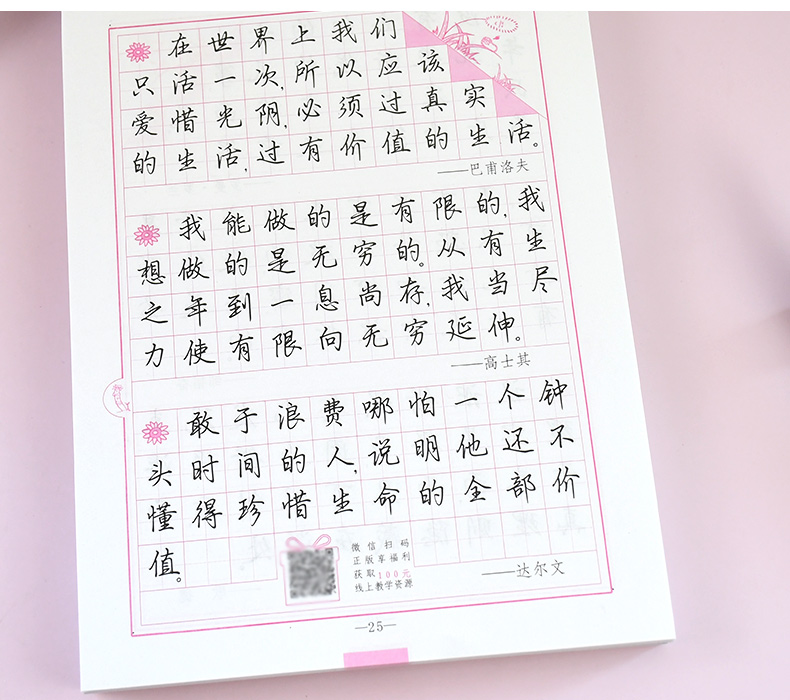 在世界上我们
只活一次,所以应该
爱惜光阴,必须过真实
的生活,过有价值的生活。
——巴甫洛夫
我能做的是有限的,我
想做的是无穷的。从有生
之年到一息尚存,我当尽
力使有限向无穷延伸。
——高士其
敢于浪费哪怕一个钟
头时间的人,说明他还不
懂得珍惜生命的全部价
值。
——达尔文
微信扫码
正版享福利
获取100元
线上教学资源
—25—